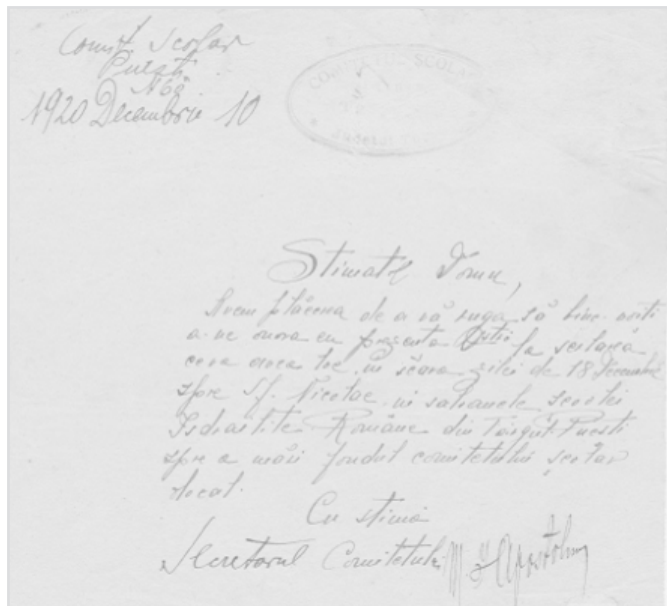 Comit. Scolar
Puesti
No 68
1920 Decembrie 10
COMITETUL SCOLAR
Stimate Domn,
Avem plăcerea de a vă ruga să bine-voiti
a ne onora cu prezenta la serbarea
ce va avea loc in seara zilei de 18 Decembrie
spre Sf. Nicolae in saloanele scoalei
Israelite Române din Târgul Puesti
spre a mări fondul comitetului scolar
local.
Cu stimă
Secretarul Comitetului Apostolu